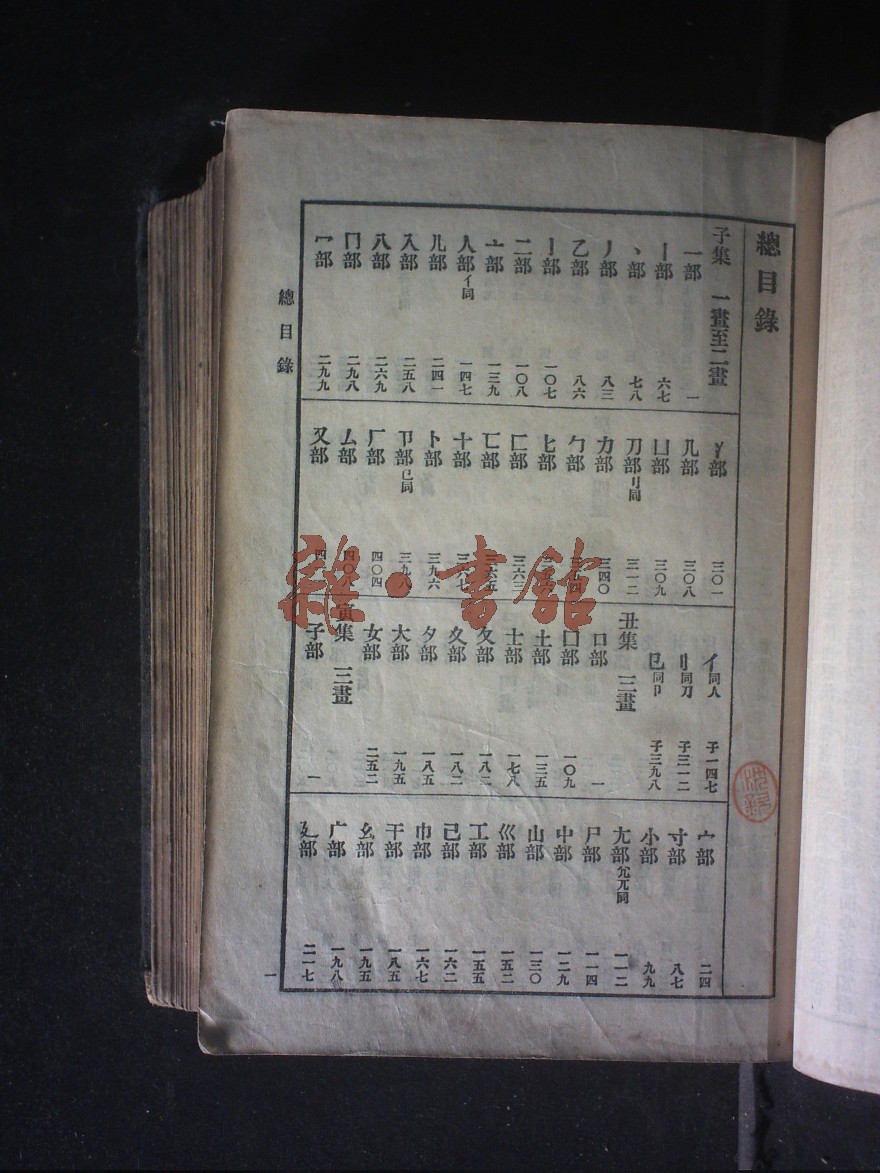 總目錄
子集 一畫至二畫
一部 一
丨部 六七
丶部 七八
丿部 八三
乙部 八六
亅部 一〇七
二部 一〇八
亠部 一三九
人部亻同 一四七
儿部 二四一
入部 二五八
八部 二六九
冂部 二九八
冖部 二九九
冫部 三〇一
几部 三〇八
凵部 三〇九
刀部刂同 三一二
力部 三四〇
勹部
匕部
匚部 三六三
匸部 三六五
十部 三六七
卜部 三九六
卩部㔾同 三九八
厂部 四〇四
厶部 四〇八
又部
亻同人 子一四七
刂同刀 子三一二
㔾同卩 子三九八
丑集 三畫
口部 一
囗部 一〇九
土部 一三五
士部 一七八
夂部 一八二
夊部 一八二
夕部 一八五
大部 一九五
女部 二五二
寅集 三畫
子部 一
宀部 二四
寸部 八七
小部 九九
尢部尣兀同 一一二
尸部 一一四
屮部 一二九
山部 一三〇
巛部 一五二
工部 一五五
己部 一六二
巾部 一六七
干部 一八五
幺部 一九五
广部 一九八
廴部 二一七
總目錄
一
雜·書館